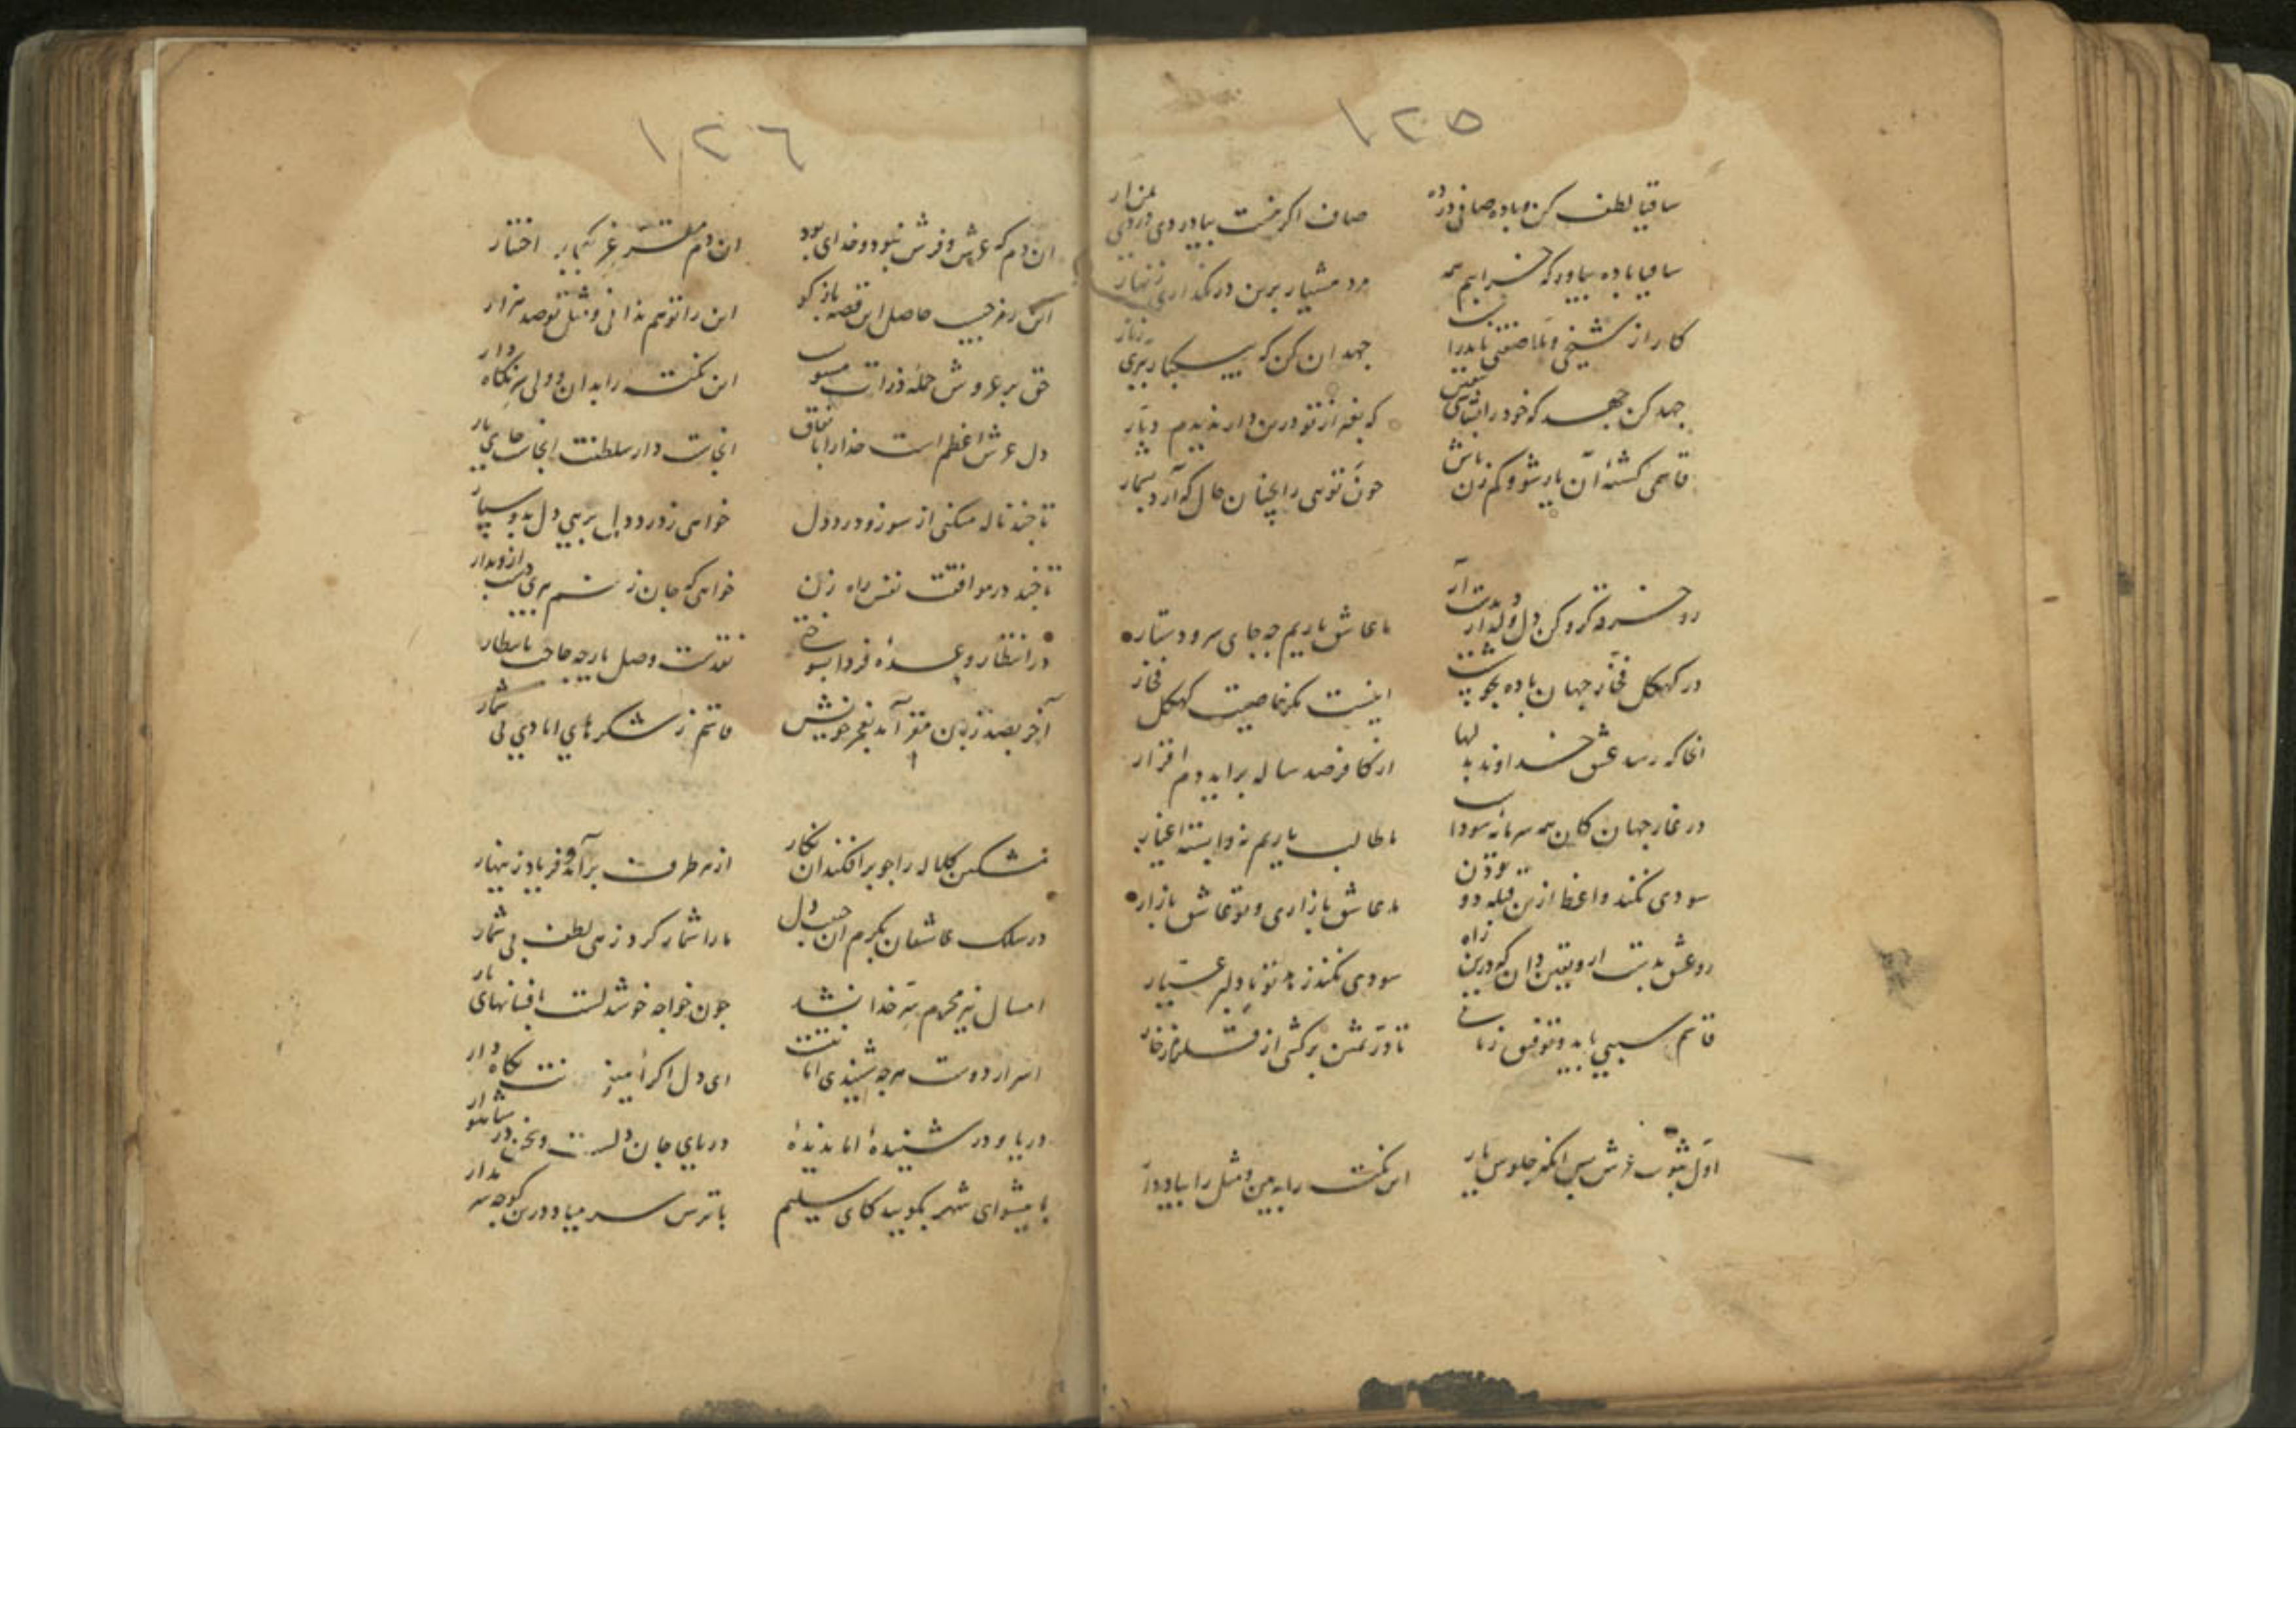 ١٢٥
ساقیا لطف کن و باده صافی در ده
صاف اکر نیست بیاور دی دردی بمن آر
ساقیا باده بیاور که خرابیم همه
مرد هشیار برین در نکذاری زنهار
کار از شیخی و ملا صفتی نابدرا
جهد ان کن که سبکبار بری
جهد کن جهد که خود را بشناسی بیقین
که بغیر از تو درین دار ندیدم دیار
قاسمی کشته آن یار شو و کم زن باش
چون تویی را بچنان حال که آرد بشمار
رو خرقه کرو کن دل و دلدار بدست آر
ما عاشق یاریم چه جای سر و دستار
در کهکل فخار جهان باده بجوشست
اینست مکر خاصیت کهکل فخار
انجا که رسد عشق خداوند بدلها
از کافر صد ساله براید دم اقرار
در غار جهان کان همه سرمایه سوداست
ما طالب یاریم نه وابسته اغیار
سودی نکند واعظ ازین قبله دو
ما عاشق بازاری و تو عاشق بازار
رو عشق بدست ار و یقین دان که درین راه
سودی نکند زهد تو با دلبر عیار
قاسم سببی باید و توفیق زمانی
تا در ثمین برکشی از قلزم زخار
اول ثبوت عرش پس انکه جلوس یار
این نکته را ببین و مثل را بیاد دار
١٢٦
ان دم که عرش و فرش نبود و خدای بود
ان دم مقر عز که بد اختیار
این رمز چیست حاصل این قصه باز کو
این را تو هم ندانی و مثل تو صد هزار
حق بر عروش جمله ذرات مستویست
این نکته را بدان ولی سر نکاه دار
دل عرش اعظم است خدا را باتفاق
انجاست دار سلطنت انجاست جای یار
تا چند ناله میکنی از سوز و درد دل
خواهی ز درد دل برهی دل بدو سپار
تا چند در موافقت نفس راه زن
خواهی که جان ز بری دست ازو بدار
در انتظار وعده فردا بسوختی
نقدست وصل یار چه حاجت بانتظار
آخر بصد زبان مقر آمد بعجز خویش
قاسم ز شکرهای ایادی بی شمار
مشکین کلاله را چو برافکند ان نکار
از هر طرف برآمد فریاد زینهار
در سلک عاشقان بکرم ان حبیب دل
ما را شمار کرد زهی لطف بی شمار
امسال نیز محرم سر خدا نشد
چون خواجه خوشدلست بافسانهای پار
اسرار دوست هرچه شنیدی امانتست
ای دل اکر امینی نکاه دار
دریا و در شنیده اما ندیده
دریای جان دلست و سخن در شاهوار
با پیشوای شهر بکویید کای سلیم
با ترس سر میا و درین کوچه سر مدار